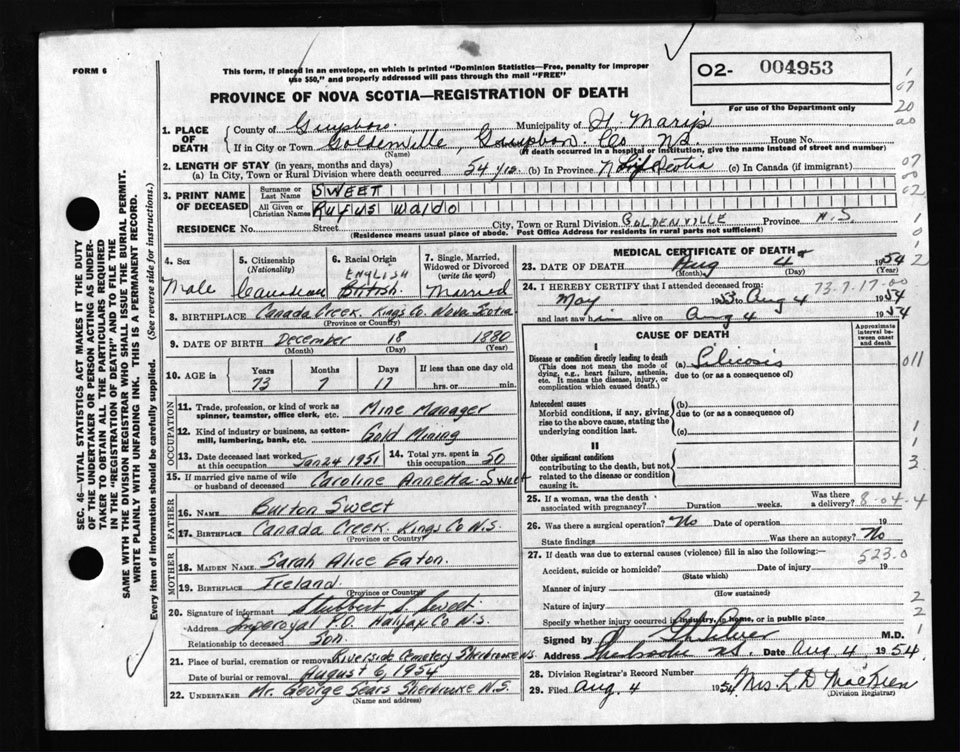 FORM 6
This form, if placed in an envelope, on which is printed "Dominion Statistics—Free, penalty for improper
use $50," and properly addressed will pass through the mail "FREE"
PROVINCE OF NOVA SCOTIA—REGISTRATION OF DEATH
O2- 004953
For use of the Department only
07
20
1. PLACE OF DEATH
County of Guysboro. Municipality of St. Mary's
If in City or Town Goldenville, Guysboro. Co N.S. House No.
(Name) (If death occurred in a hospital or institution, give the name instead of street and number)
2. LENGTH OF STAY (in years, months and days)
(a) In City, Town or Rural Division where death occurred 54 yrs. (b) In Province Nova Scotia (c) In Canada (if immigrant)
07
00
02
3. PRINT NAME OF DECEASED
Surname or Last Name SWEET
All Given or Christian Names Rufus Waldo
RESIDENCE No. Street City, Town or Rural Division GOLDENVILLE Province N.S.
(Residence means usual place of abode. Post Office Address for residents in rural parts not sufficient)
4. Sex
Male
5. Citizenship
(Nationality)
Canadian
6. Racial Origin
ENGLISH
British.
7. Single, Married,
Widowed or Divorced
(write the word)
Married
8. BIRTHPLACE Canada Creek. Kings Co. Nova Scotia.
(Province or Country)
9. DATE OF BIRTH December 18 1880
(Month) (Day) (Year)
10. AGE in
Years Months Days If less than one day old
73 7 17 hrs. or min.
OCCUPATION
11. Trade, profession, or kind of work as
spinner, teamster, office clerk, etc. Mine Manager
12. Kind of industry or business, as cotton-
mill, lumbering, bank, etc. Gold Mining
13. Date deceased last worked
at this occupation Jan 24 1951
14. Total yrs. spent in
this occupation 50
15. If married give name of wife
or husband of deceased Caroline Annetta Sweet
FATHER
16. NAME Burton Sweet
17. BIRTHPLACE Canada Creek. Kings Co N.S.
(Province or Country)
MOTHER
18. MAIDEN NAME Sarah Alice Eaton.
19. BIRTHPLACE Ireland.
(Province or Country)
20. Signature of informant S. Sweet.
Address Imperoyal P.O. Halifax Co N.S.
Relationship to deceased Son.
21. Place of burial, cremation or removal Riverside Cemetery Sherbrooke N.S.
Date of burial or removal August 6, 1954
22. UNDERTAKER Mr. George Sears Sherbrooke N.S.
(Name and address)
MEDICAL CERTIFICATE OF DEATH
23. DATE OF DEATH Aug 4 1954
(Month) (Day) (Year)
24. I HEREBY CERTIFY that I attended deceased from: 73-7-17-00
May 1953 to Aug 4 1954
and last saw him alive on Aug 4 1954
CAUSE OF DEATH
Approximate
interval be-
tween onset
and death
I
Disease or condition directly leading to death
(This does not mean the mode of
dying, e.g., heart failure, asthenia,
etc. It means the disease, injury, or
complication which caused death.)
(a) Silicosis
due to (or as a consequence of)
011
Antecedent causes
Morbid conditions, if any, giving
rise to the above cause, stating the
underlying condition last.
(b)
due to (or as a consequence of)
(c)
II
Other significant conditions
contributing to the death, but not
related to the disease or condition
causing it.
1
1
3
25. If a woman, was the death
associated with pregnancy? Duration weeks. Was there
a delivery?
8-04-4
26. Was there a surgical operation? No Date of operation 19
State findings Was there an autopsy? No
27. If death was due to external causes (violence) fill in also the following:—
523.0
Accident, suicide or homicide? Date of injury 19
(State which)
Manner of injury
(How sustained)
Nature of injury
Specify whether injury occurred in industry, in home, or in public place
2
2
Signed by M.D.
Address Sherbrooke N.S. Date Aug 4 1954.
28. Division Registrar's Record Number
29. Filed Aug. 4 1954 Mrs. L. D. MacKeen
(Division Registrar)
SEC. 46—VITAL STATISTICS ACT MAKES IT THE DUTY
OF THE UNDERTAKER OR PERSON ACTING AS UNDER-
TAKER TO OBTAIN ALL THE PARTICULARS REQUIRED
IN THE "REGISTRATION OF DEATH" AND TO FILE THE
SAME WITH THE DIVISION REGISTRAR WHO SHALL ISSUE THE BURIAL PERMIT.
WRITE PLAINLY WITH UNFADING INK. THIS IS A PERMANENT RECORD.
Every item of information should be carefully supplied. (See reverse side for instructions.)